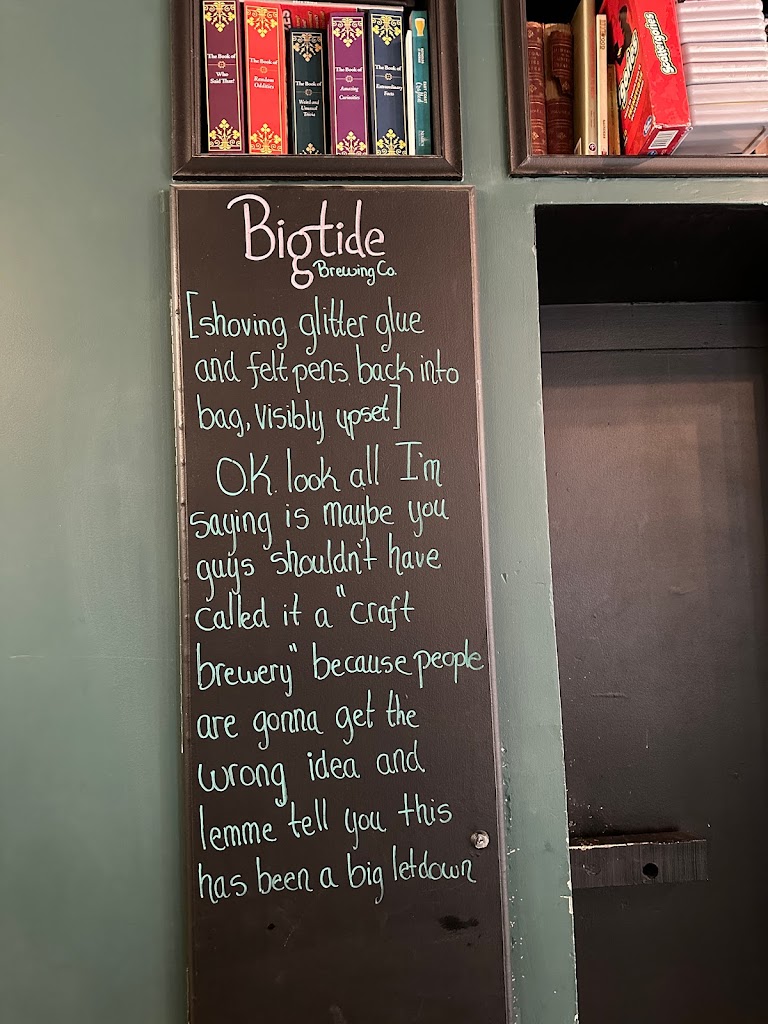 The Book of
Who
Said That?
The Book of
Random
Oddities
The Book of
Weird and
Unusual
Trivia
The Book of
Amazing
Curiosities
The Book of
Extraordinary
Facts
Scattergories
Bigtide
Brewing Co.
[shoving glitter glue
and felt pens back into
bag, visibly upset]
O.K. look all I'm
saying is maybe you
guys shouldn't have
called it a "craft
brewery" because people
are gonna get the
wrong idea and
lemme tell you this
has been a big letdown